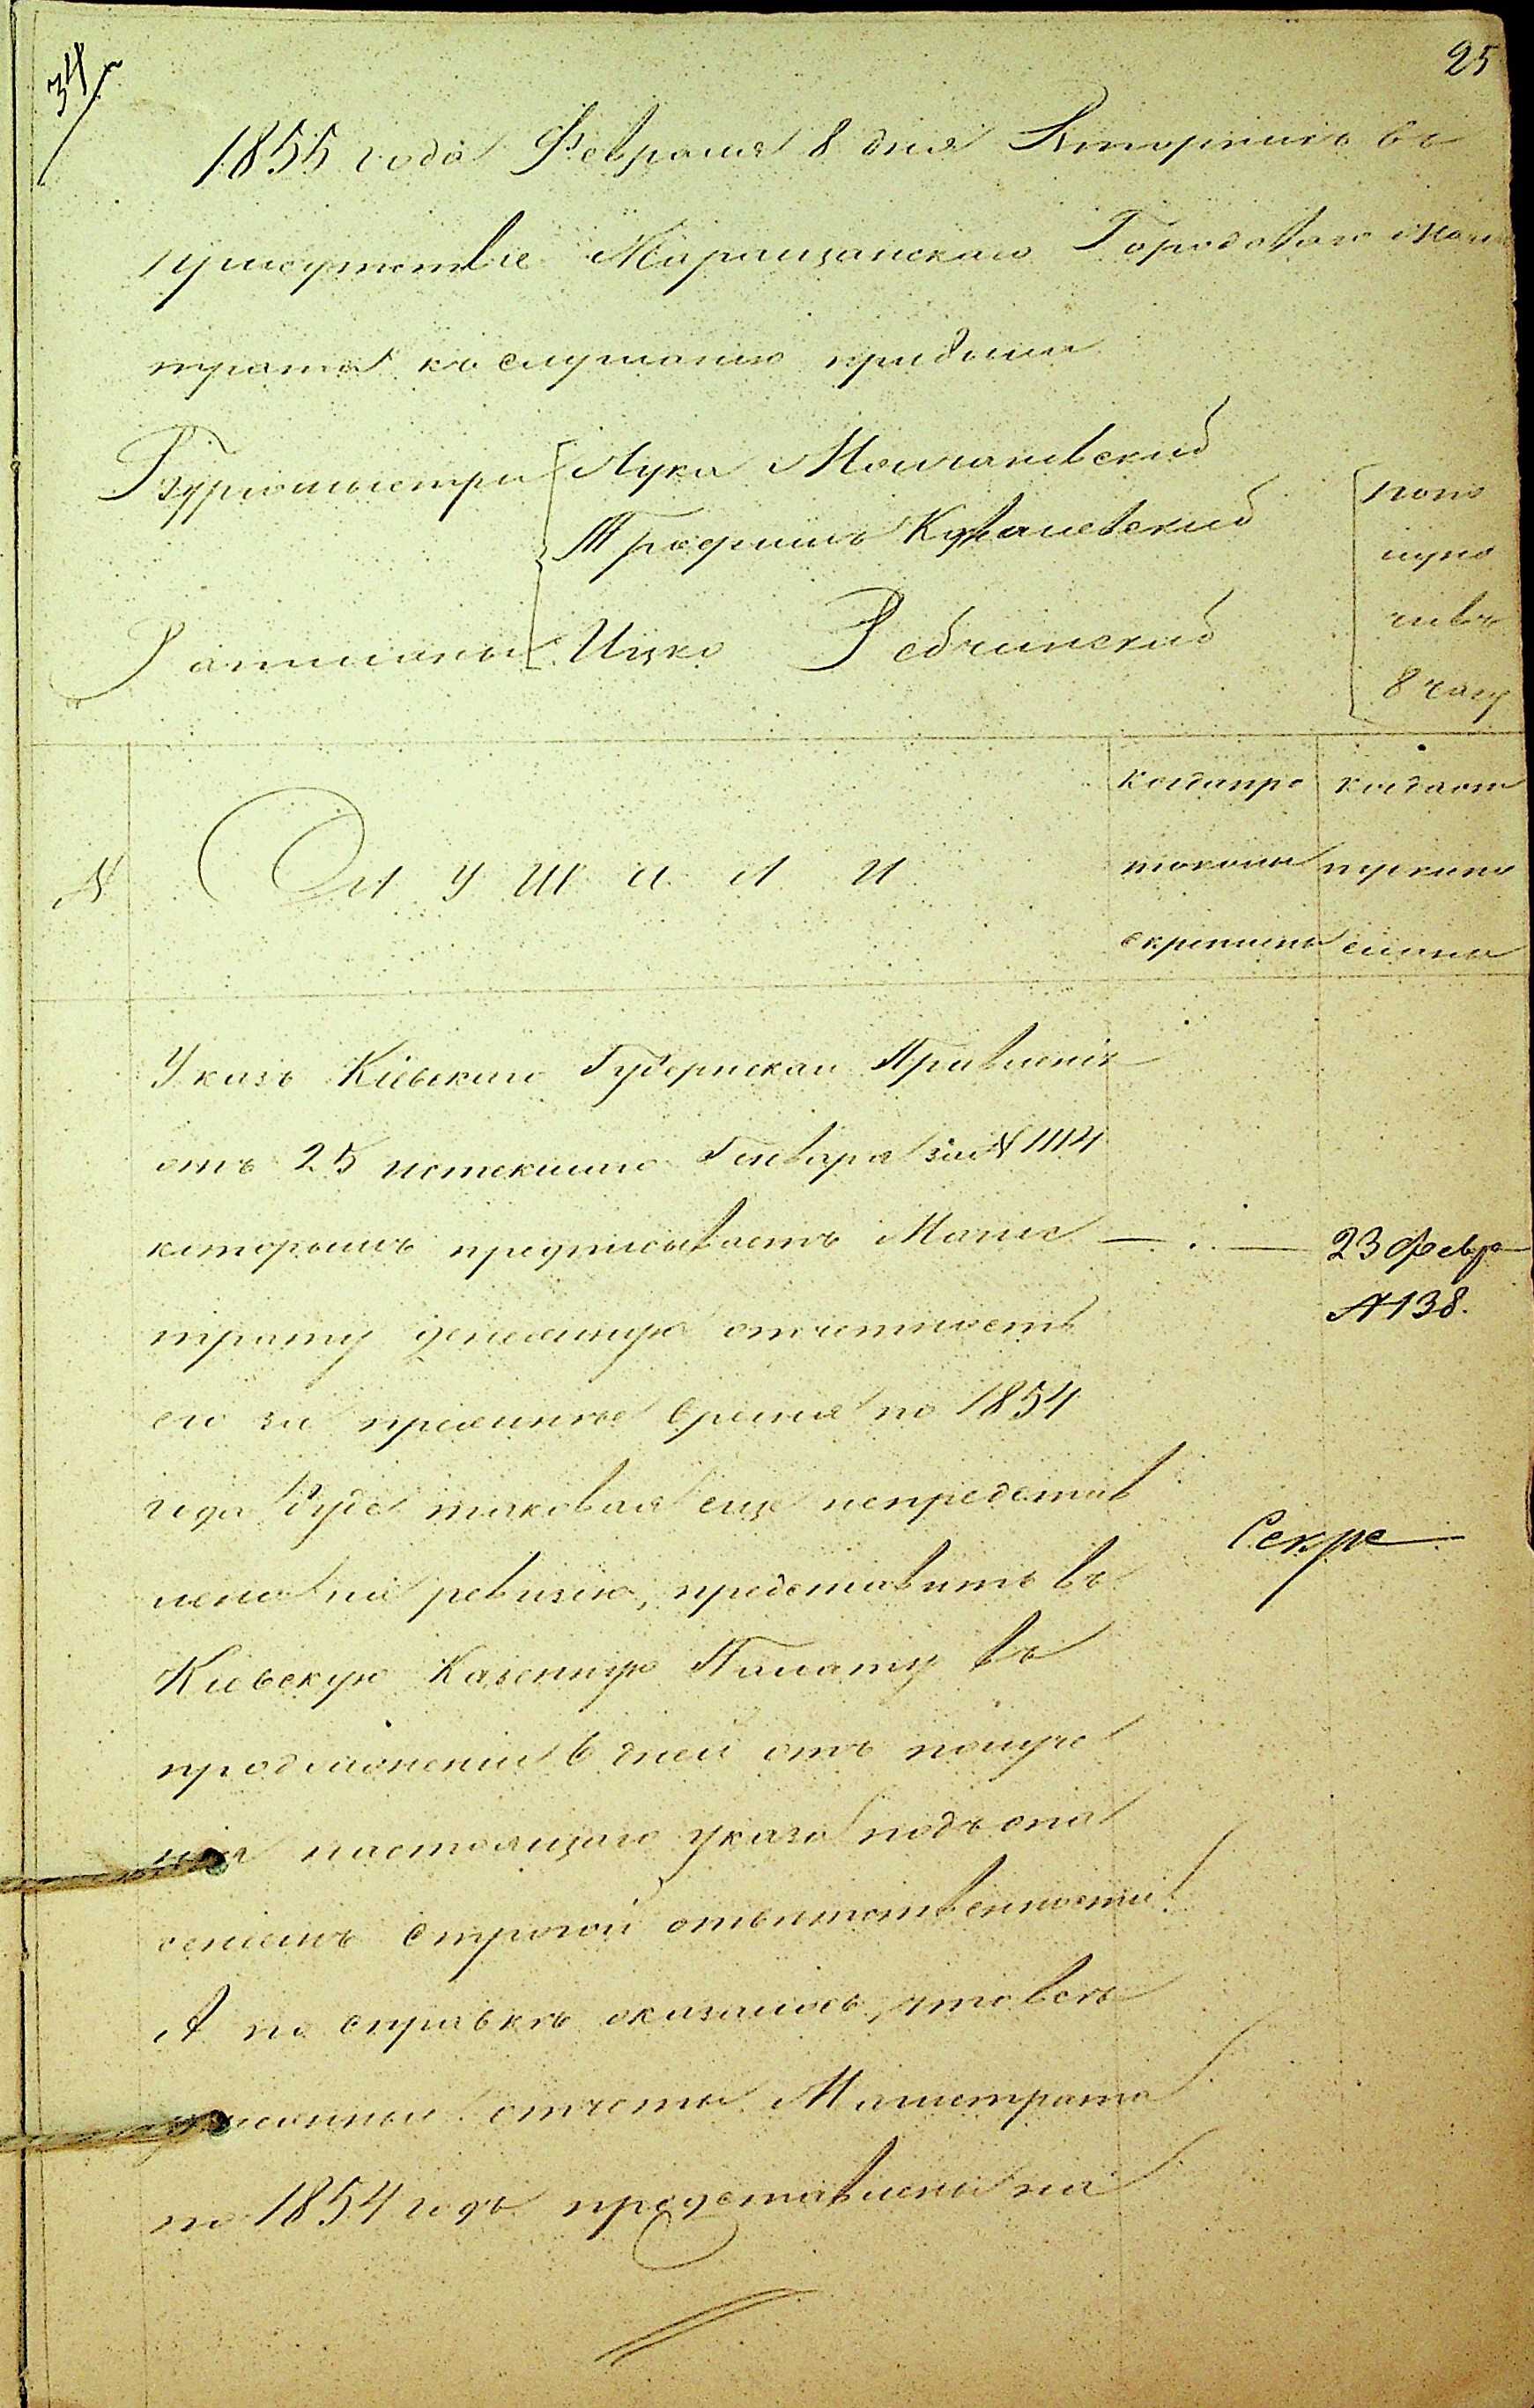 34
25
1855 года Февраля 8 дня Вторникъ въ
присутствіе Таращанскаго Городоваго Маги
страта къ слушанію прибыли
Бургомистры Лука Молчановскій
Трофимъ Ковалевскій
Ратманы Ицко Ребчинскій
попо
луно
чивъ
8 часу
№
Слушали
когда про
токолы
скреплены
когда от
пуски по
сланы
Указъ Кіевскаго Губернскаго Правленія
отъ 25 истекшаго Генваря за № 1114
которымъ предписываетъ Магис
трату денежную отчетность
его за прежнее время по 1854
года буде таковая еще непредстав
лена на ревизію, представить въ
Кіевскую Казенную Палату въ
продолженіи 6 дней отъ получе
нія настоящаго указа подъ опа
сеніемъ строгой отвѣтственности
А по справкѣ оказалось, что всѣ
денежныя отчеты Магистрата
по 1854 годъ представлены на
23 Февра
№ 138.
Секре